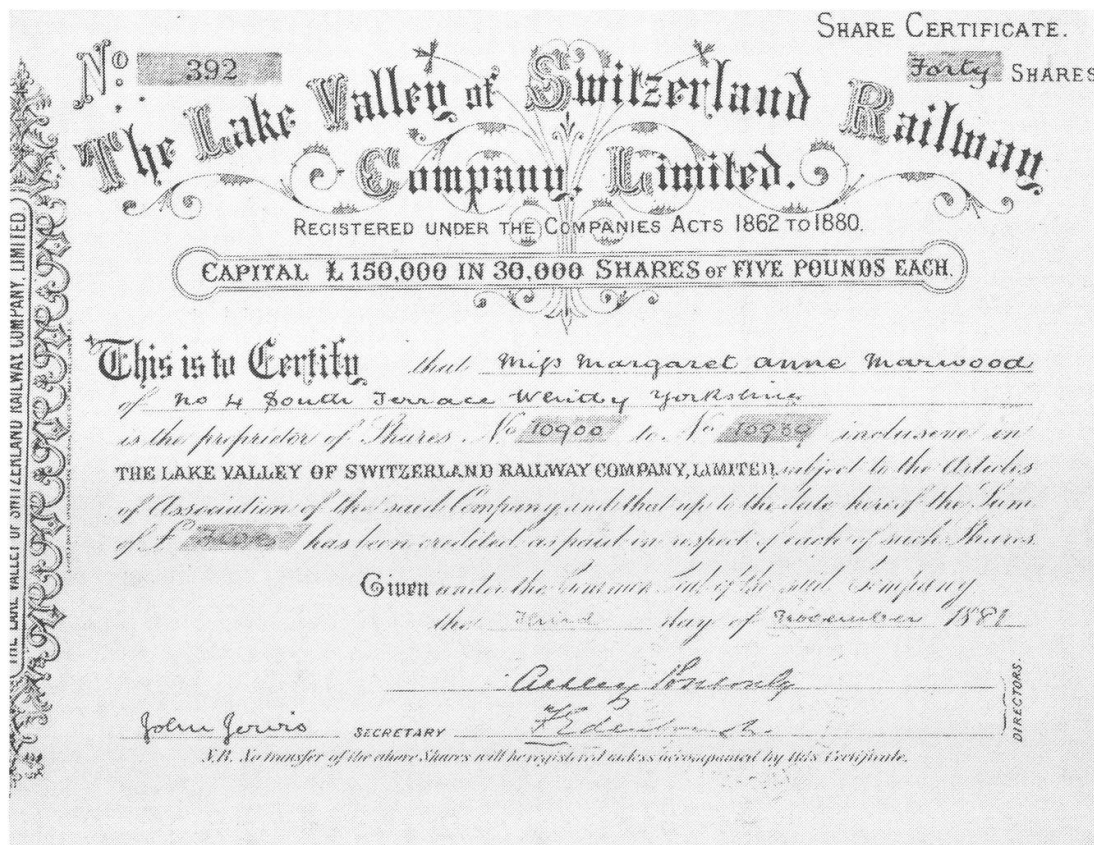 SHARE CERTIFICATE.
No. 392
Forty SHARES
The Lake Valley of Switzerland Railway
Company, Limited.
REGISTERED UNDER THE COMPANIES ACTS 1862 TO 1880.
CAPITAL £150,000 IN 30,000 SHARES OF FIVE POUNDS EACH.
This is to Certify that Miss Margaret Anne Marwood
of No 4 South Terrace Whitby Yorkshire
is the proprietor of Shares No 10900 to No 10939 inclusive in
THE LAKE VALLEY OF SWITZERLAND RAILWAY COMPANY, LIMITED, subject to the Articles
of Association of the said Company, and that up to the date hereof the Sum
of £ has been credited as paid in respect of each of such Shares
Given under the Common Seal of the said Company
the Third day of November 1881
John Jervis SECRETARY
DIRECTORS.
N.B. No transfer of the above Shares will be registered unless accompanied by this Certificate.
THE LAKE VALLEY OF SWITZERLAND RAILWAY COMPANY, LIMITED